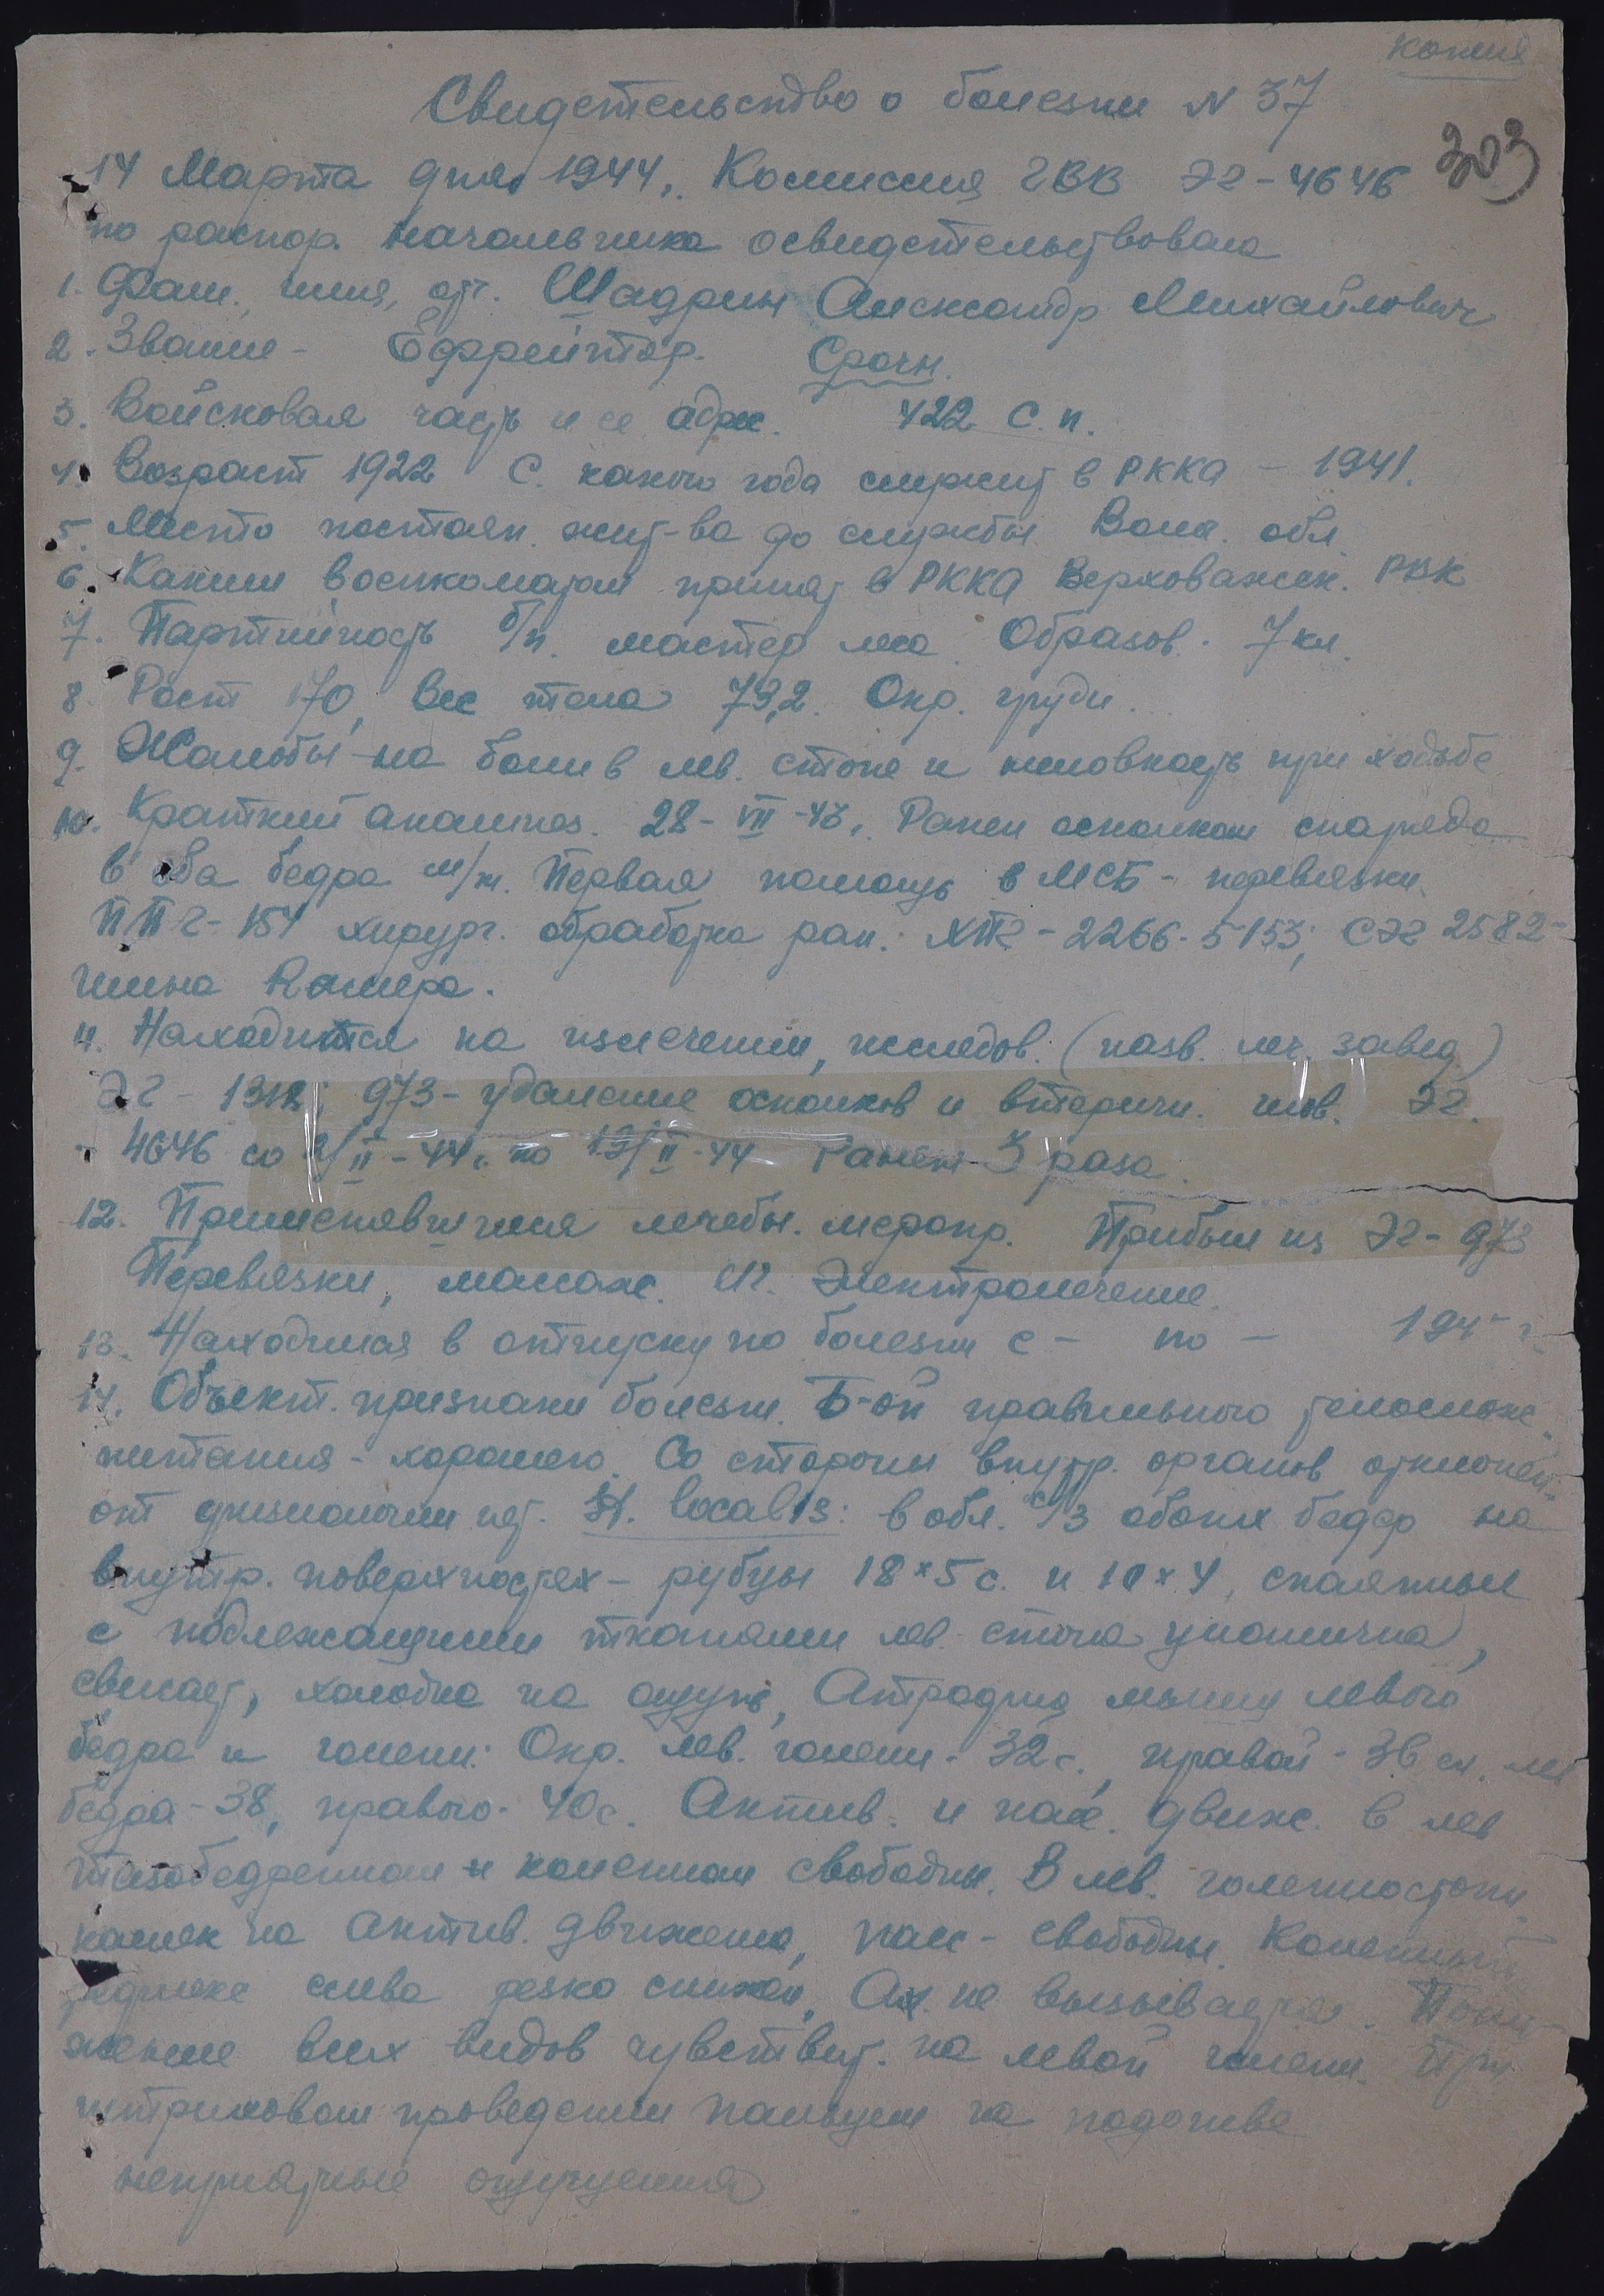 копия
Свидетельство о болезни N 37
303
14 Марта дня 1944г. Комиссия ГВВ ЭГ-4646
по распор. начальника освидетельствовала
1. Фам., имя, отч. Шадрин Александр Михайлович
2. Звание - Ефрейтор. Срочн.
3. Войсковая часть и ее адрес. 422 с.п.
4. Возраст 1922 С. какого года служит в РККА - 1941.
5. Место постоян. жит-ва до службы Волог. обл.
6. Каким военкоматом принят в РККА Верховажск. РВК
7. Партийность б/п. мастер леса. Образов. 7 кл.
8. Рост 170, вес тела 73,2. Окр. груди.
9. Жалобы на боли в лев. стопе и неловкость при ходьбе
10. Краткий анамнез. 28-VII-43г. Ранен осколком снаряда
в оба бедра м/т. Первая помощь в МСБ - перевязки.
ППГ-154 хирург. обработка ран. ХПГ-2266-5153; СЭГ 2582-
шина Крамера.
11. Находится на излечении, исследов. (назв. леч. завед)
ЭГ - 973 - удаление осколков и вторичн. шов. ЭГ.
- 4646 со II-44г. по II-44 Ранен 3 раза.
12. Применявшиеся лечебн. меропр. Прибыл из ЭГ-973
Перевязки, массаж. Электролечение.
13. Находился в отпуску по болезни с - по - 194- г.
14. Объект. признаки болезни. Б-ой правильного телослож.
питания - хорошего. Со стороны внутр. органов отклонен.
от физиологии нет. St. localis: в обл. с/3 обоих бедер на
внутр. поверхностях - рубцы 18×5 с. и 10×4, спаянные
с подлежащими тканями лев. стопа цианотична,
свисает, холодна на ощупь, Атрофия мышц левого
бедра и голени: Окр. лев. голени - 32 с., правой - 36 см. лев
бедра - 38, правого - 40 с. Актив. и пас. движ. в лев
тазобедренном и коленном свободны. В лев. голеностопн.
намек на актив. движения, пасс - свободны. Коленный
рефлекс слева резко снижен, Ах. не вызывается. Пони-
жение всех видов чувствит. на левой голени. При
штриховом проведении пальцем на подошве
неприятные ощущения